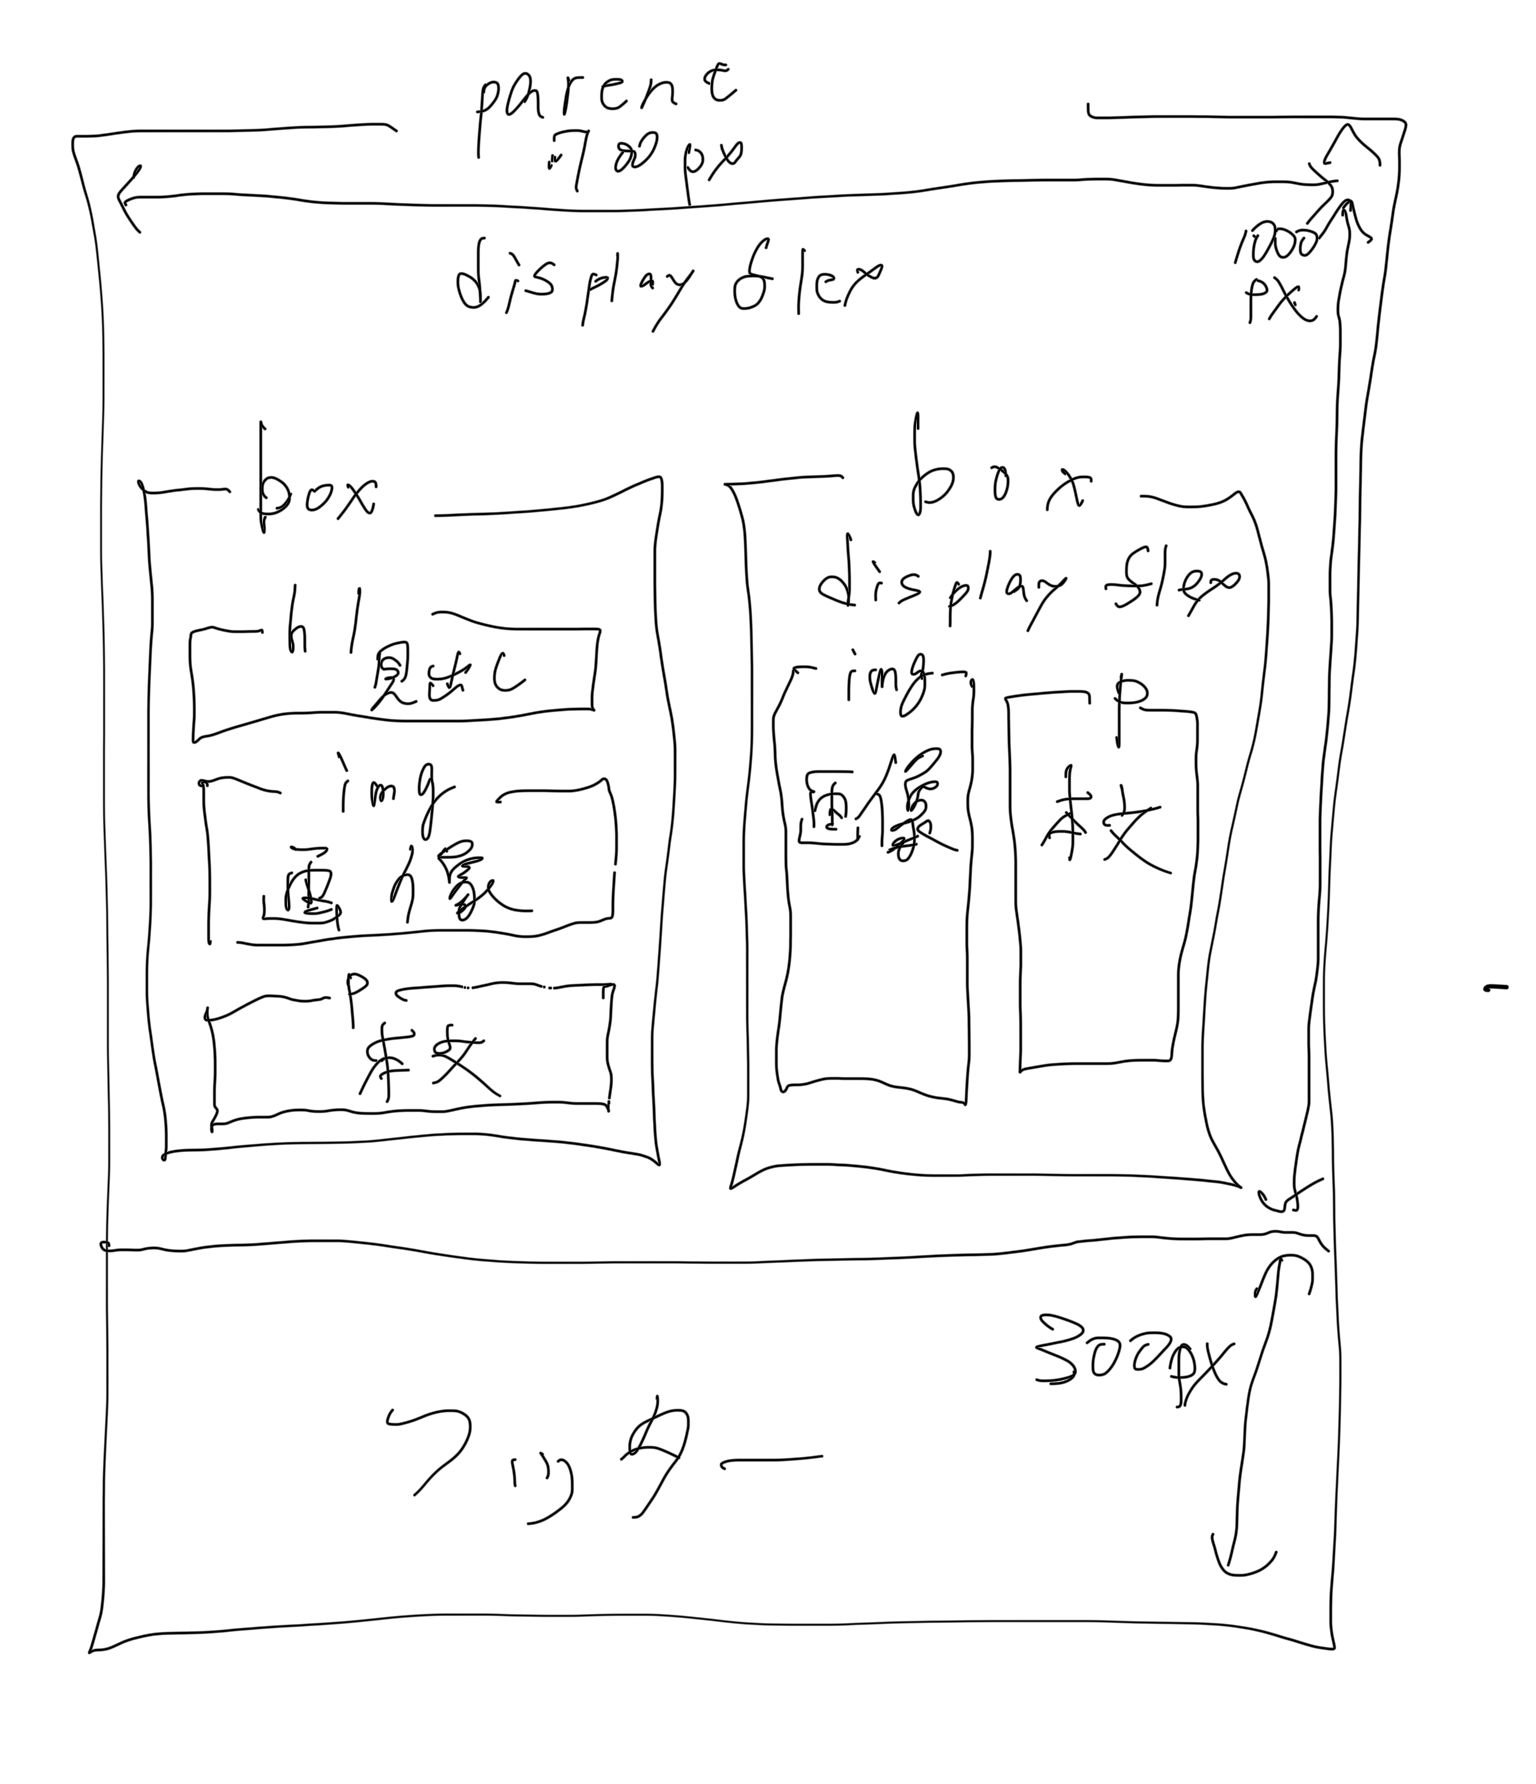 parent
700px
1000
px
display flex
box
h1
見出し
img
画像
p
本文
box
display flex
img
画像
p
本文
300px
フッター